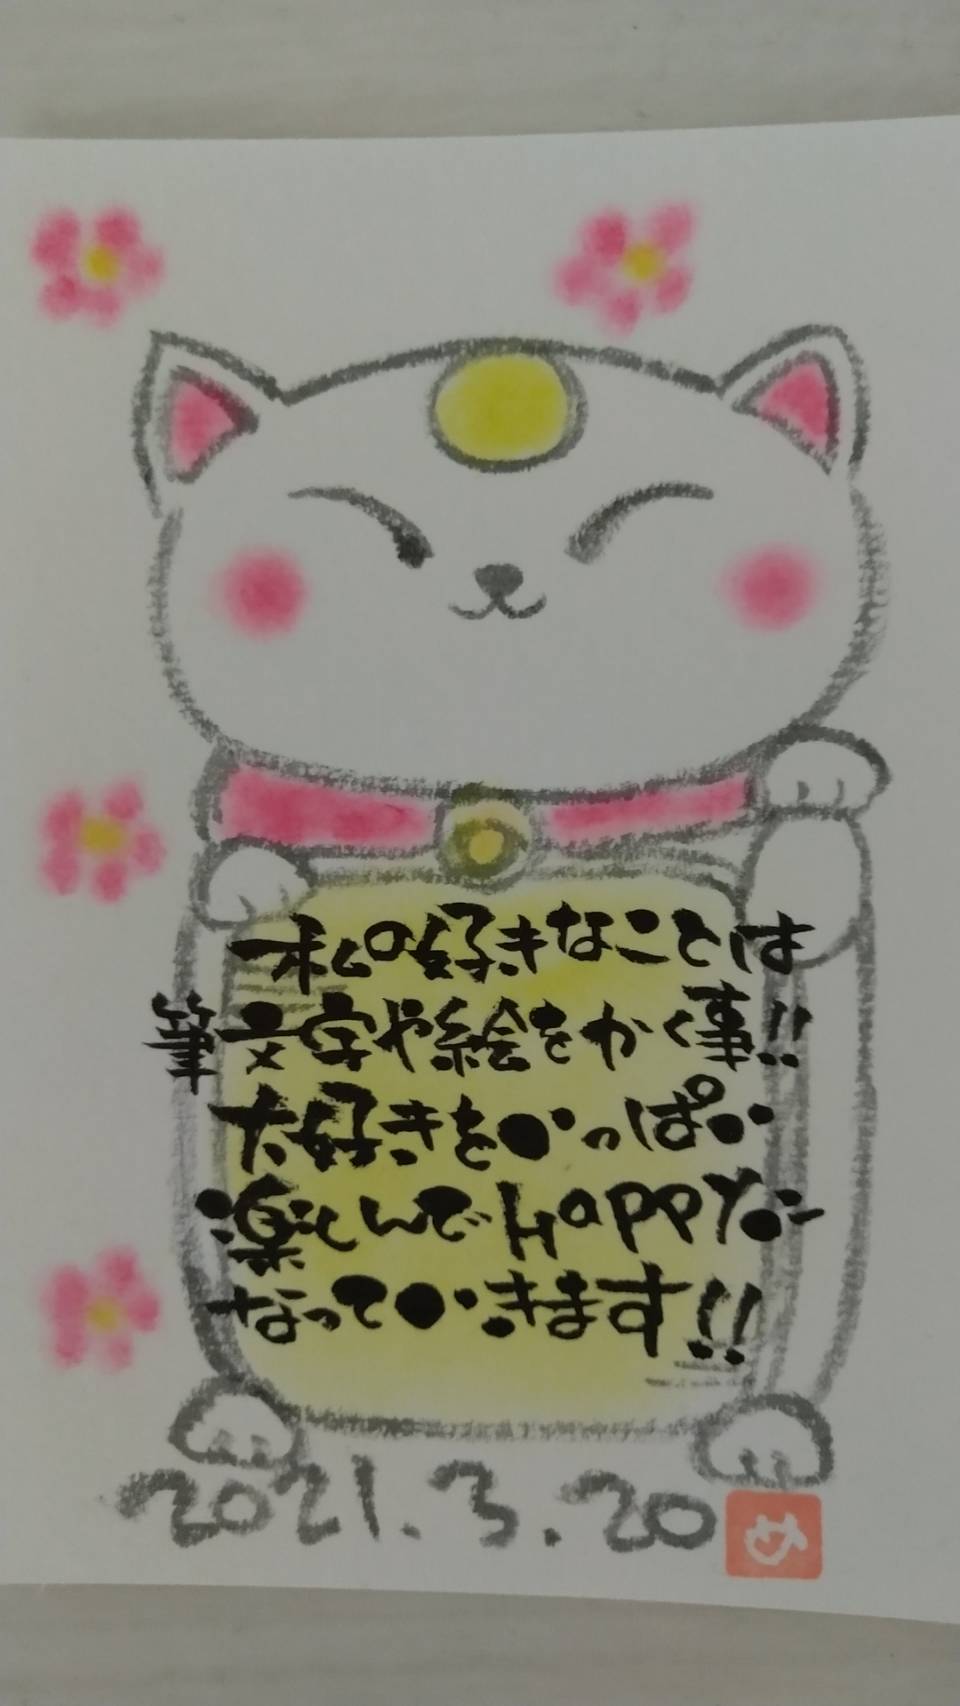 私の好きなことは
筆文字や絵をかく事!!
大好きをいっぱい
楽しんでHAPPYに
なっていきます!!
2021.3.20
め